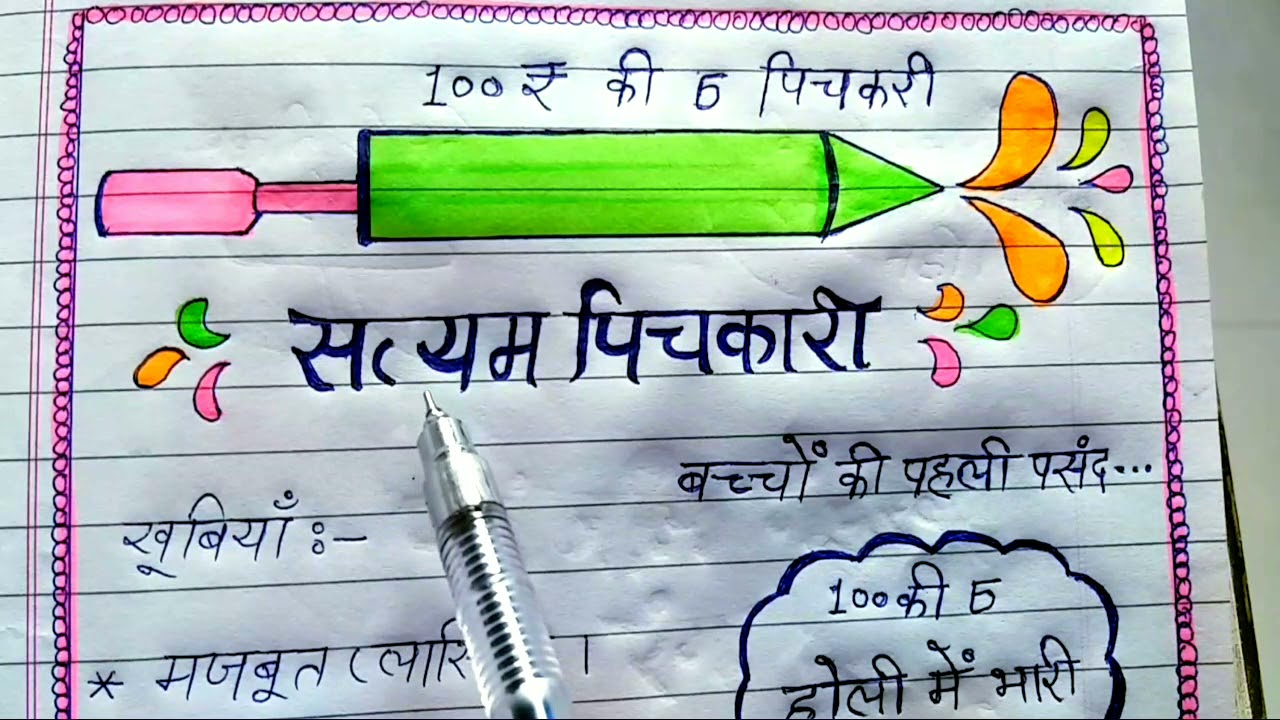 100₹ की 5 पिचकरी
सत्यम पिचकारी
बच्चों की पहली पसंद...
खूबियाँ :-
100 की 5
* मजबूत ।
होली में भारी